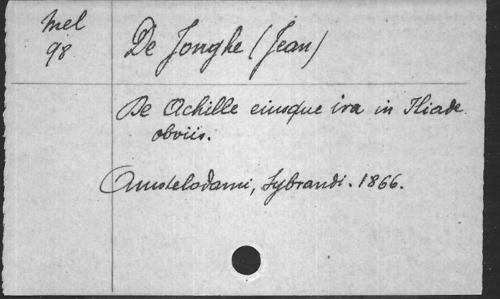 Mel
98
De Jonghe (Jean)
De Achille eiusque ira in Iliade
obviis.
Amstelodami, Sybrandi. 1866.